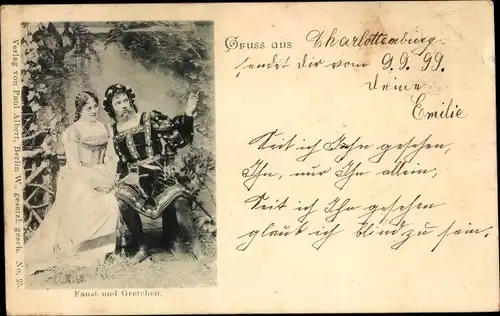 Gruss aus Charlottenburg
sendet Dir vom 9.9.99.
Deine
Emilie
Seit ich Ihn gesehen,
Ihn, nur Ihn allein,
Seit ich Ihn gesehen
glaub ich blind zu sein.
Verlag von Paul Albert, Berlin W., gesetzl. gesch. No.
Faust und Gretchen.